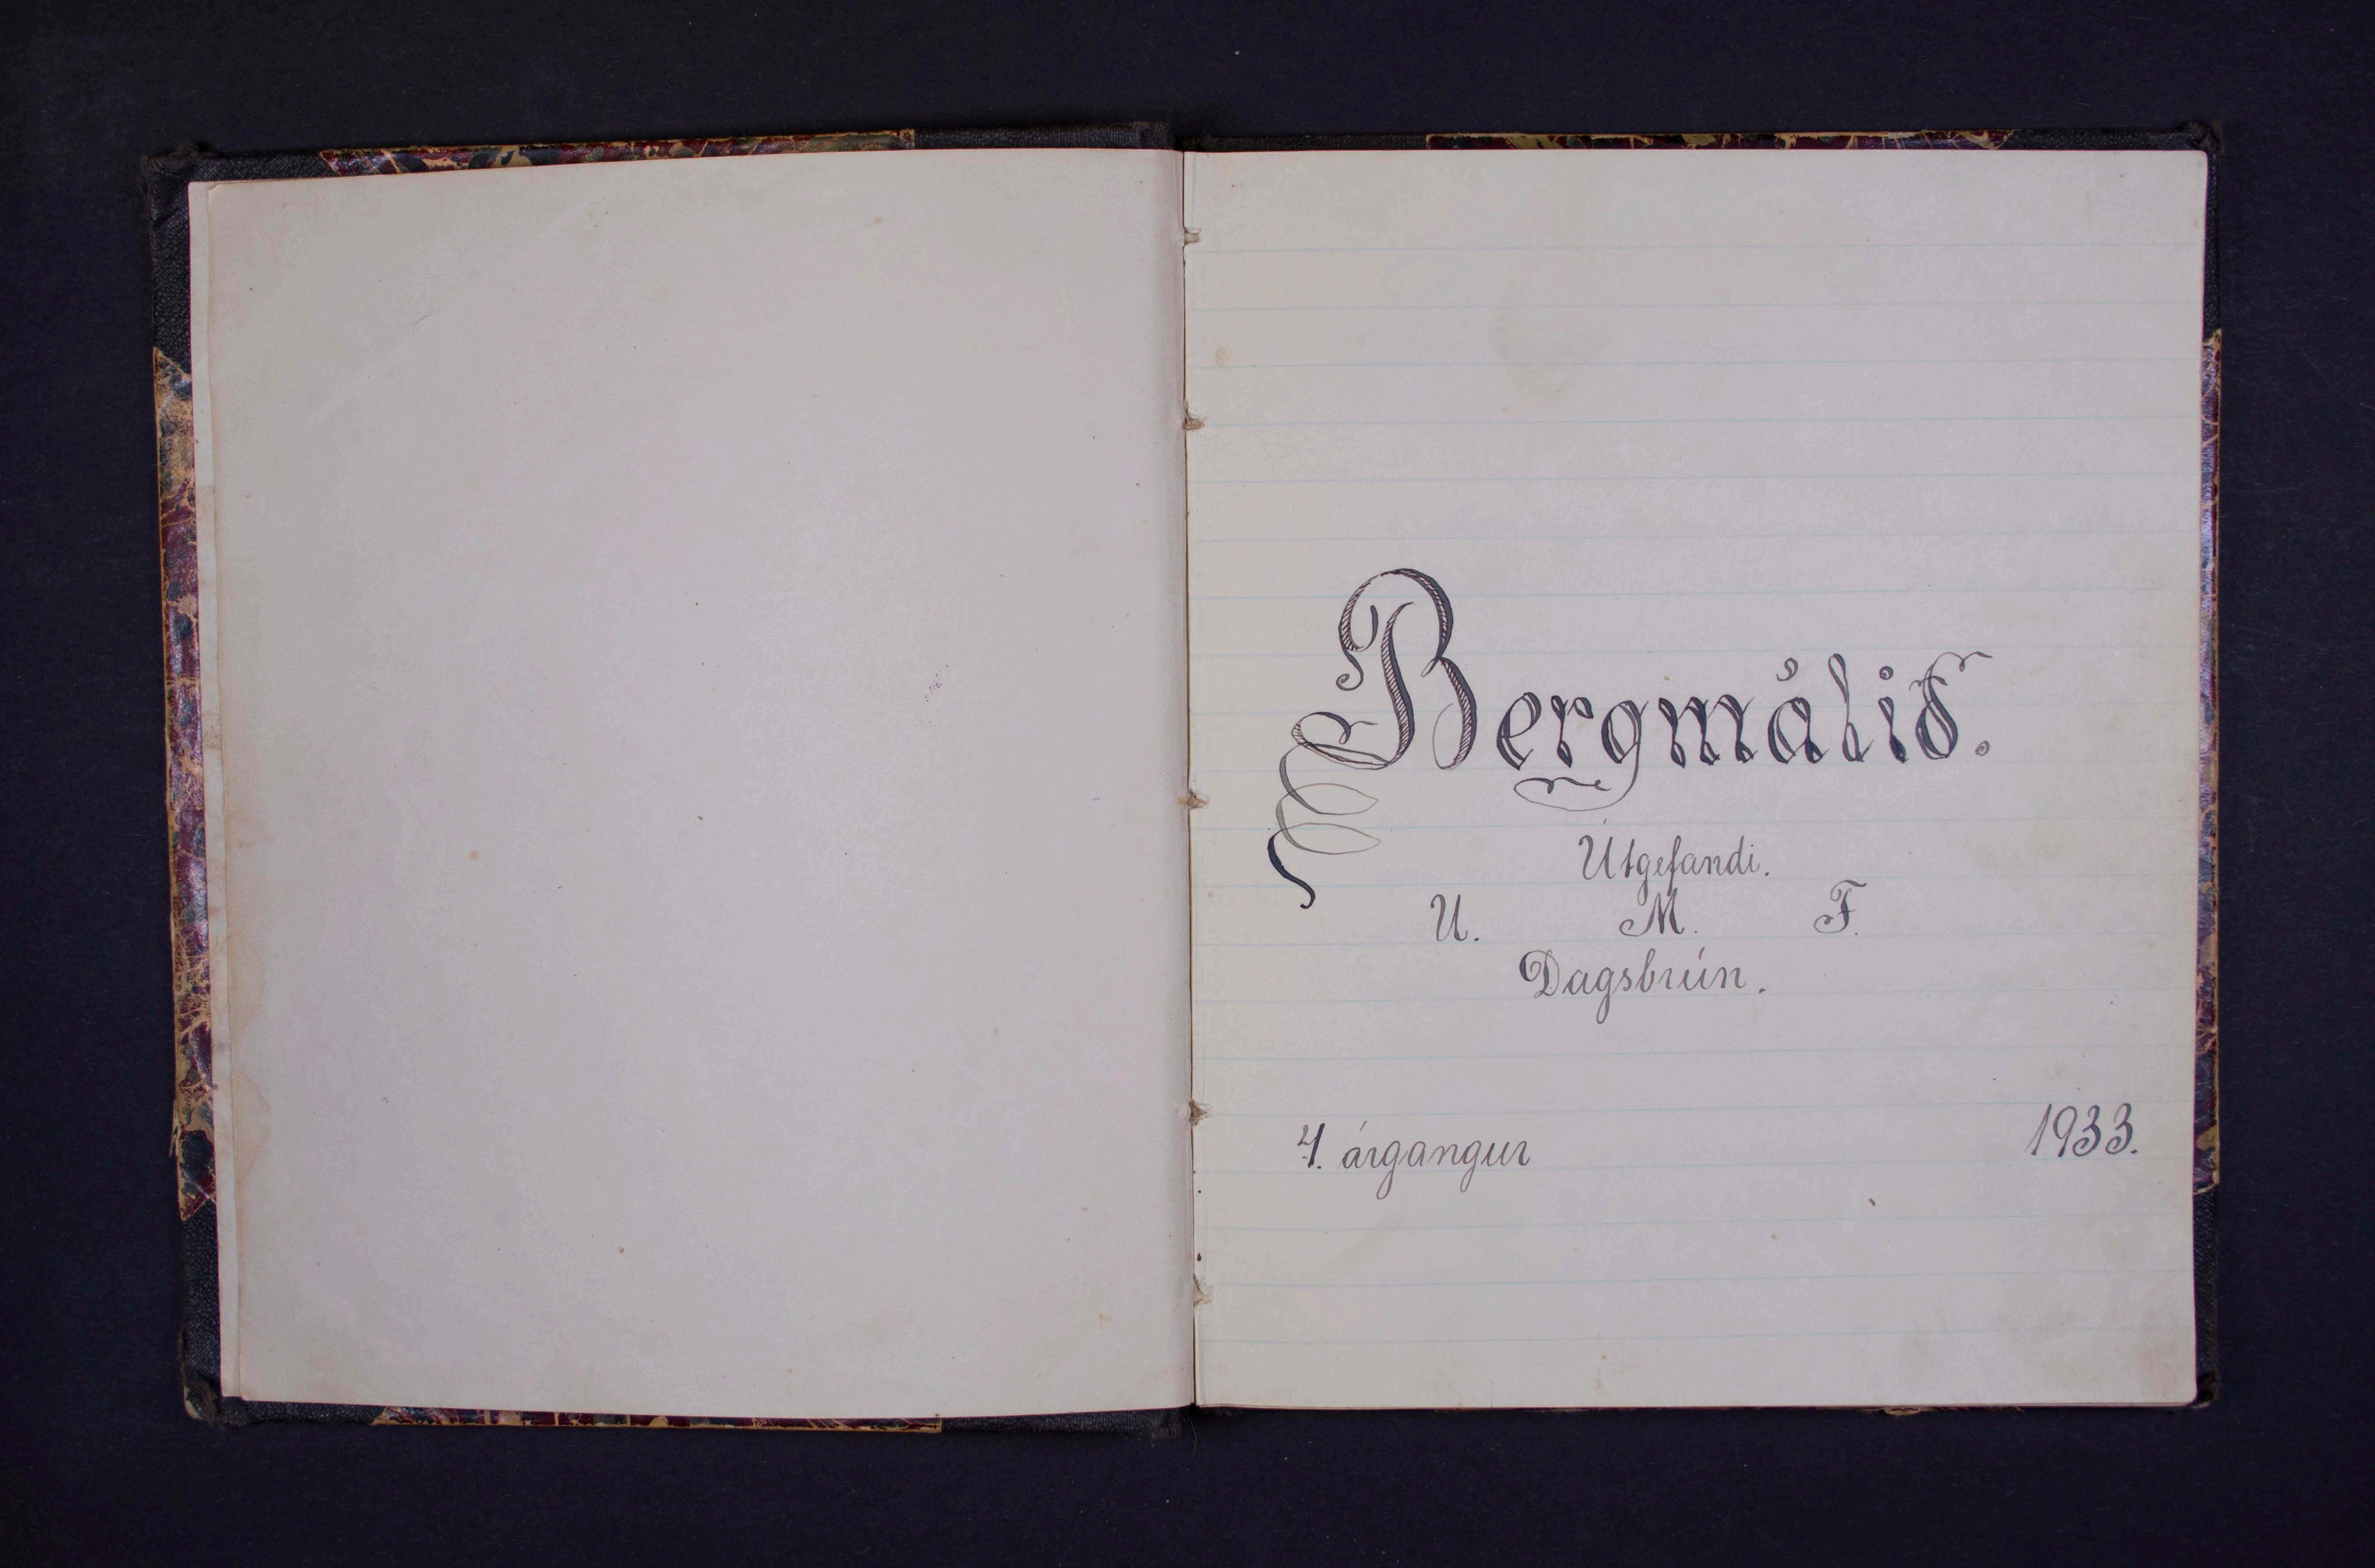 Bergmálið.
Útgefandi.
U. M. F.
Dagsbrún.
4. árgangur 1933.